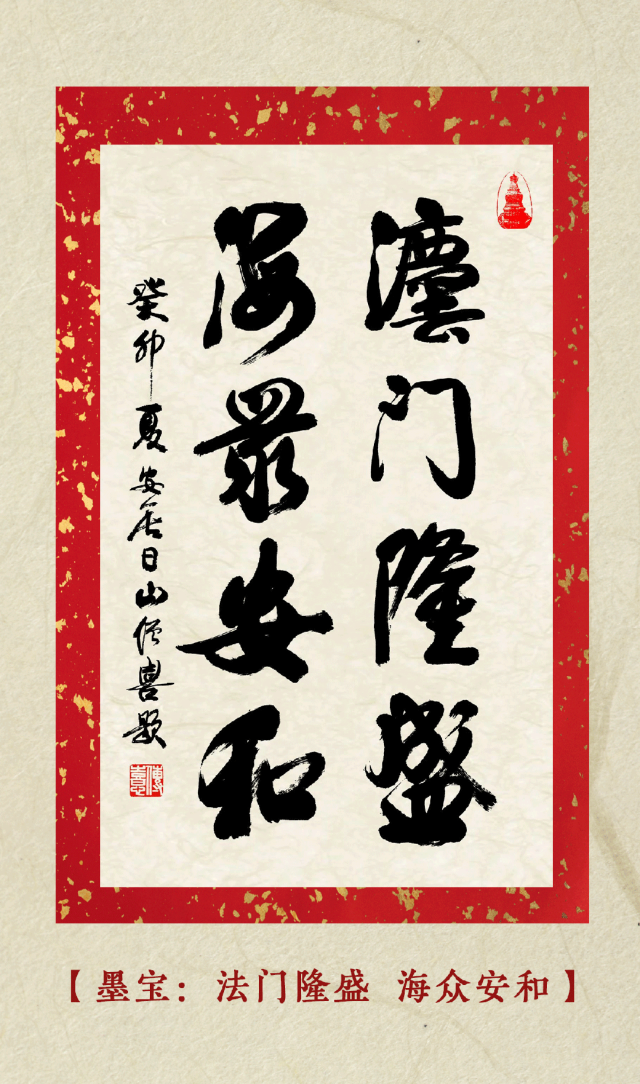 灋门隆盛
海众安和
癸卯夏安居日山僧喜题
【墨宝：法门隆盛 海众安和】